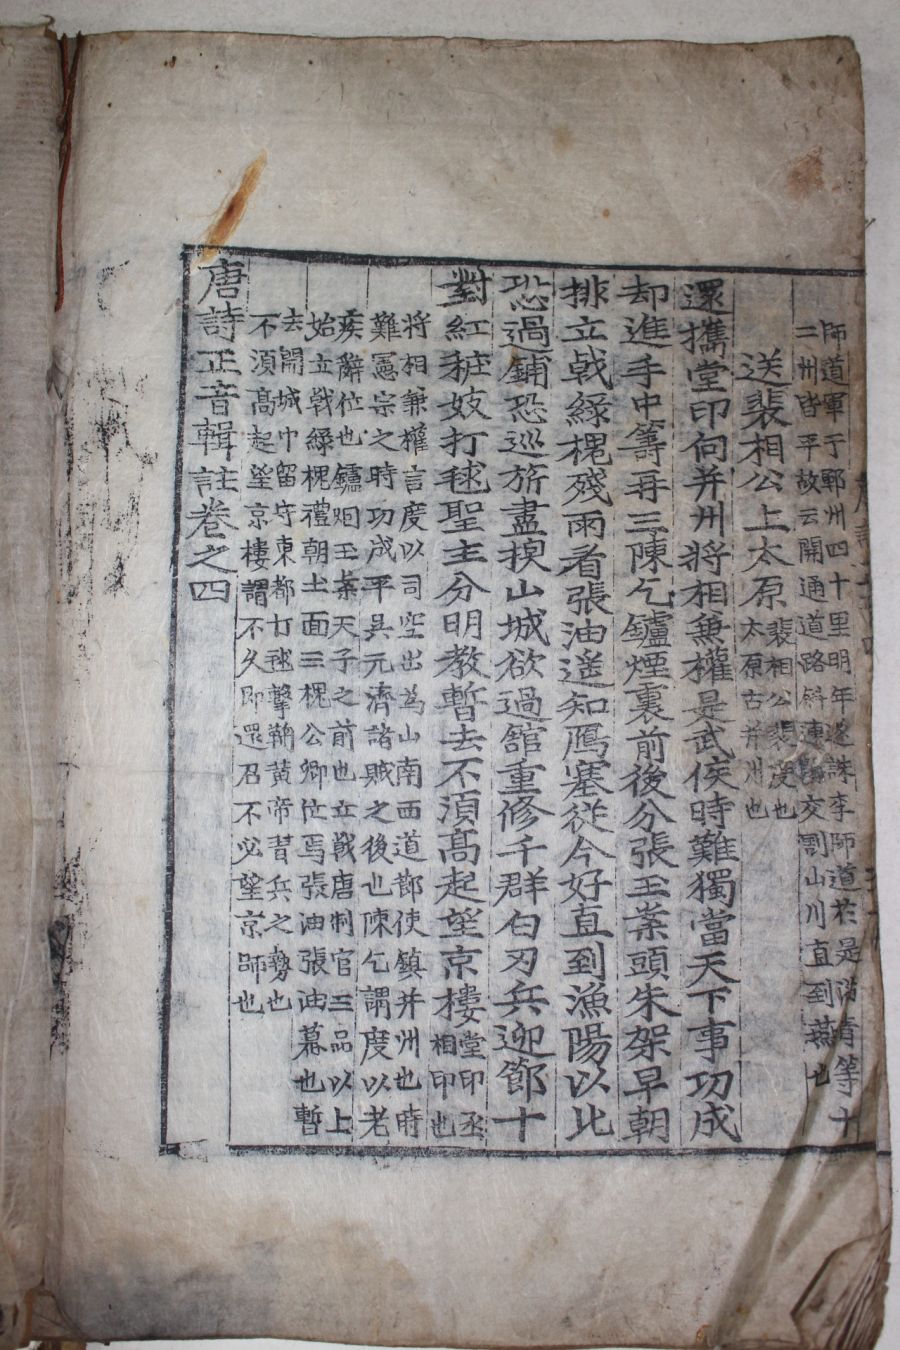 師道軍于鄆州四十里明年遂誅李師道於是淄青等十
二州皆平故云開通道路斜連海交割山川直到燕也
送裴相公上太原
裴相公裴度也
太原古并州也
還攜堂印向并州將相兼權是武侯時難獨當天下事功成
却進手中籌再三陳乞鑪煙裏前後分張玉案頭朱架早朝
排立戟綠槐殘雨看張油遙知鴈塞從今好直到漁陽以北
恐過鋪恐巡旂盡換山城欲過館重修千群白刃兵迎節十
對紅粧妓打毬聖主分明教暫去不須高起望京樓
堂印丞
相印也
將相兼權言度以司空出為山南西道節使鎮并州也時
難憲宗之時功成平吳元濟諸賊之後也陳乞謂度以老
疾辭位也鑪烟玉案天子之前也立戟唐制官三品以上
始立戟綠槐禮朝士面三槐公卿位焉張油張油幕也暫
去開城中留守東都打毬擊鞠黃帝昔兵之勢也
不須高起望京樓謂不久即還召不必望京師也
唐詩正音輯註卷之四